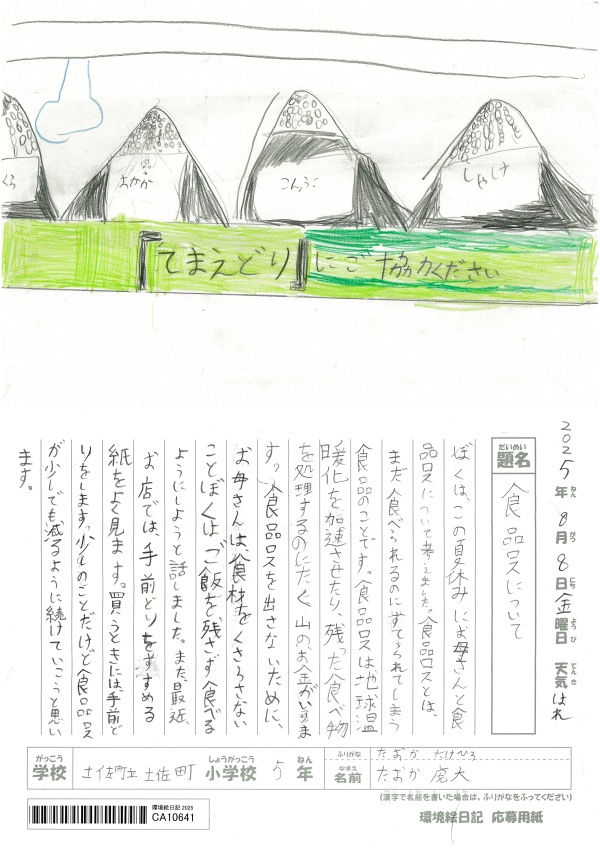 くら
おかか
こんぶ
しゃけ
てまえどりにご協力ください
2025年8月8日金曜日 天気はれ
ねん がつ にち ようび てんき
だいめい
題名
食品ロスについて
ぼくは、この夏休みにお母さんと食
品ロスについて考えました。食品ロスとは、
まだ食べられるのにすてられてしまう
食品のことです。食品ロスは地球温
暖化を加速させたり、残った食べ物
を処理するのにたく山の、お金がいりま
す。食品ロスを出さないために、
お母さんは、食材をくさらさない
ことぼくは、ご飯を残さず食べる
ようにしようと話しました。また、最近、
お店では、手前どりをすすめる
紙をよく見ます。買うときには、手前ど
りをします。少しのことだけど食品ロス
が少しでも減るように続けていこうと思い
ます。
がっこう しょうがっこう ねん
学校 土佐町立土佐町 小学校 5年
ふりがな たおか たけひろ
なまえ
名前 たおか 虎大
(漢字で名前を書いた場合は、ふりがなをふってください)
環境絵日記 2025
CA10641
環境絵日記 応募用紙